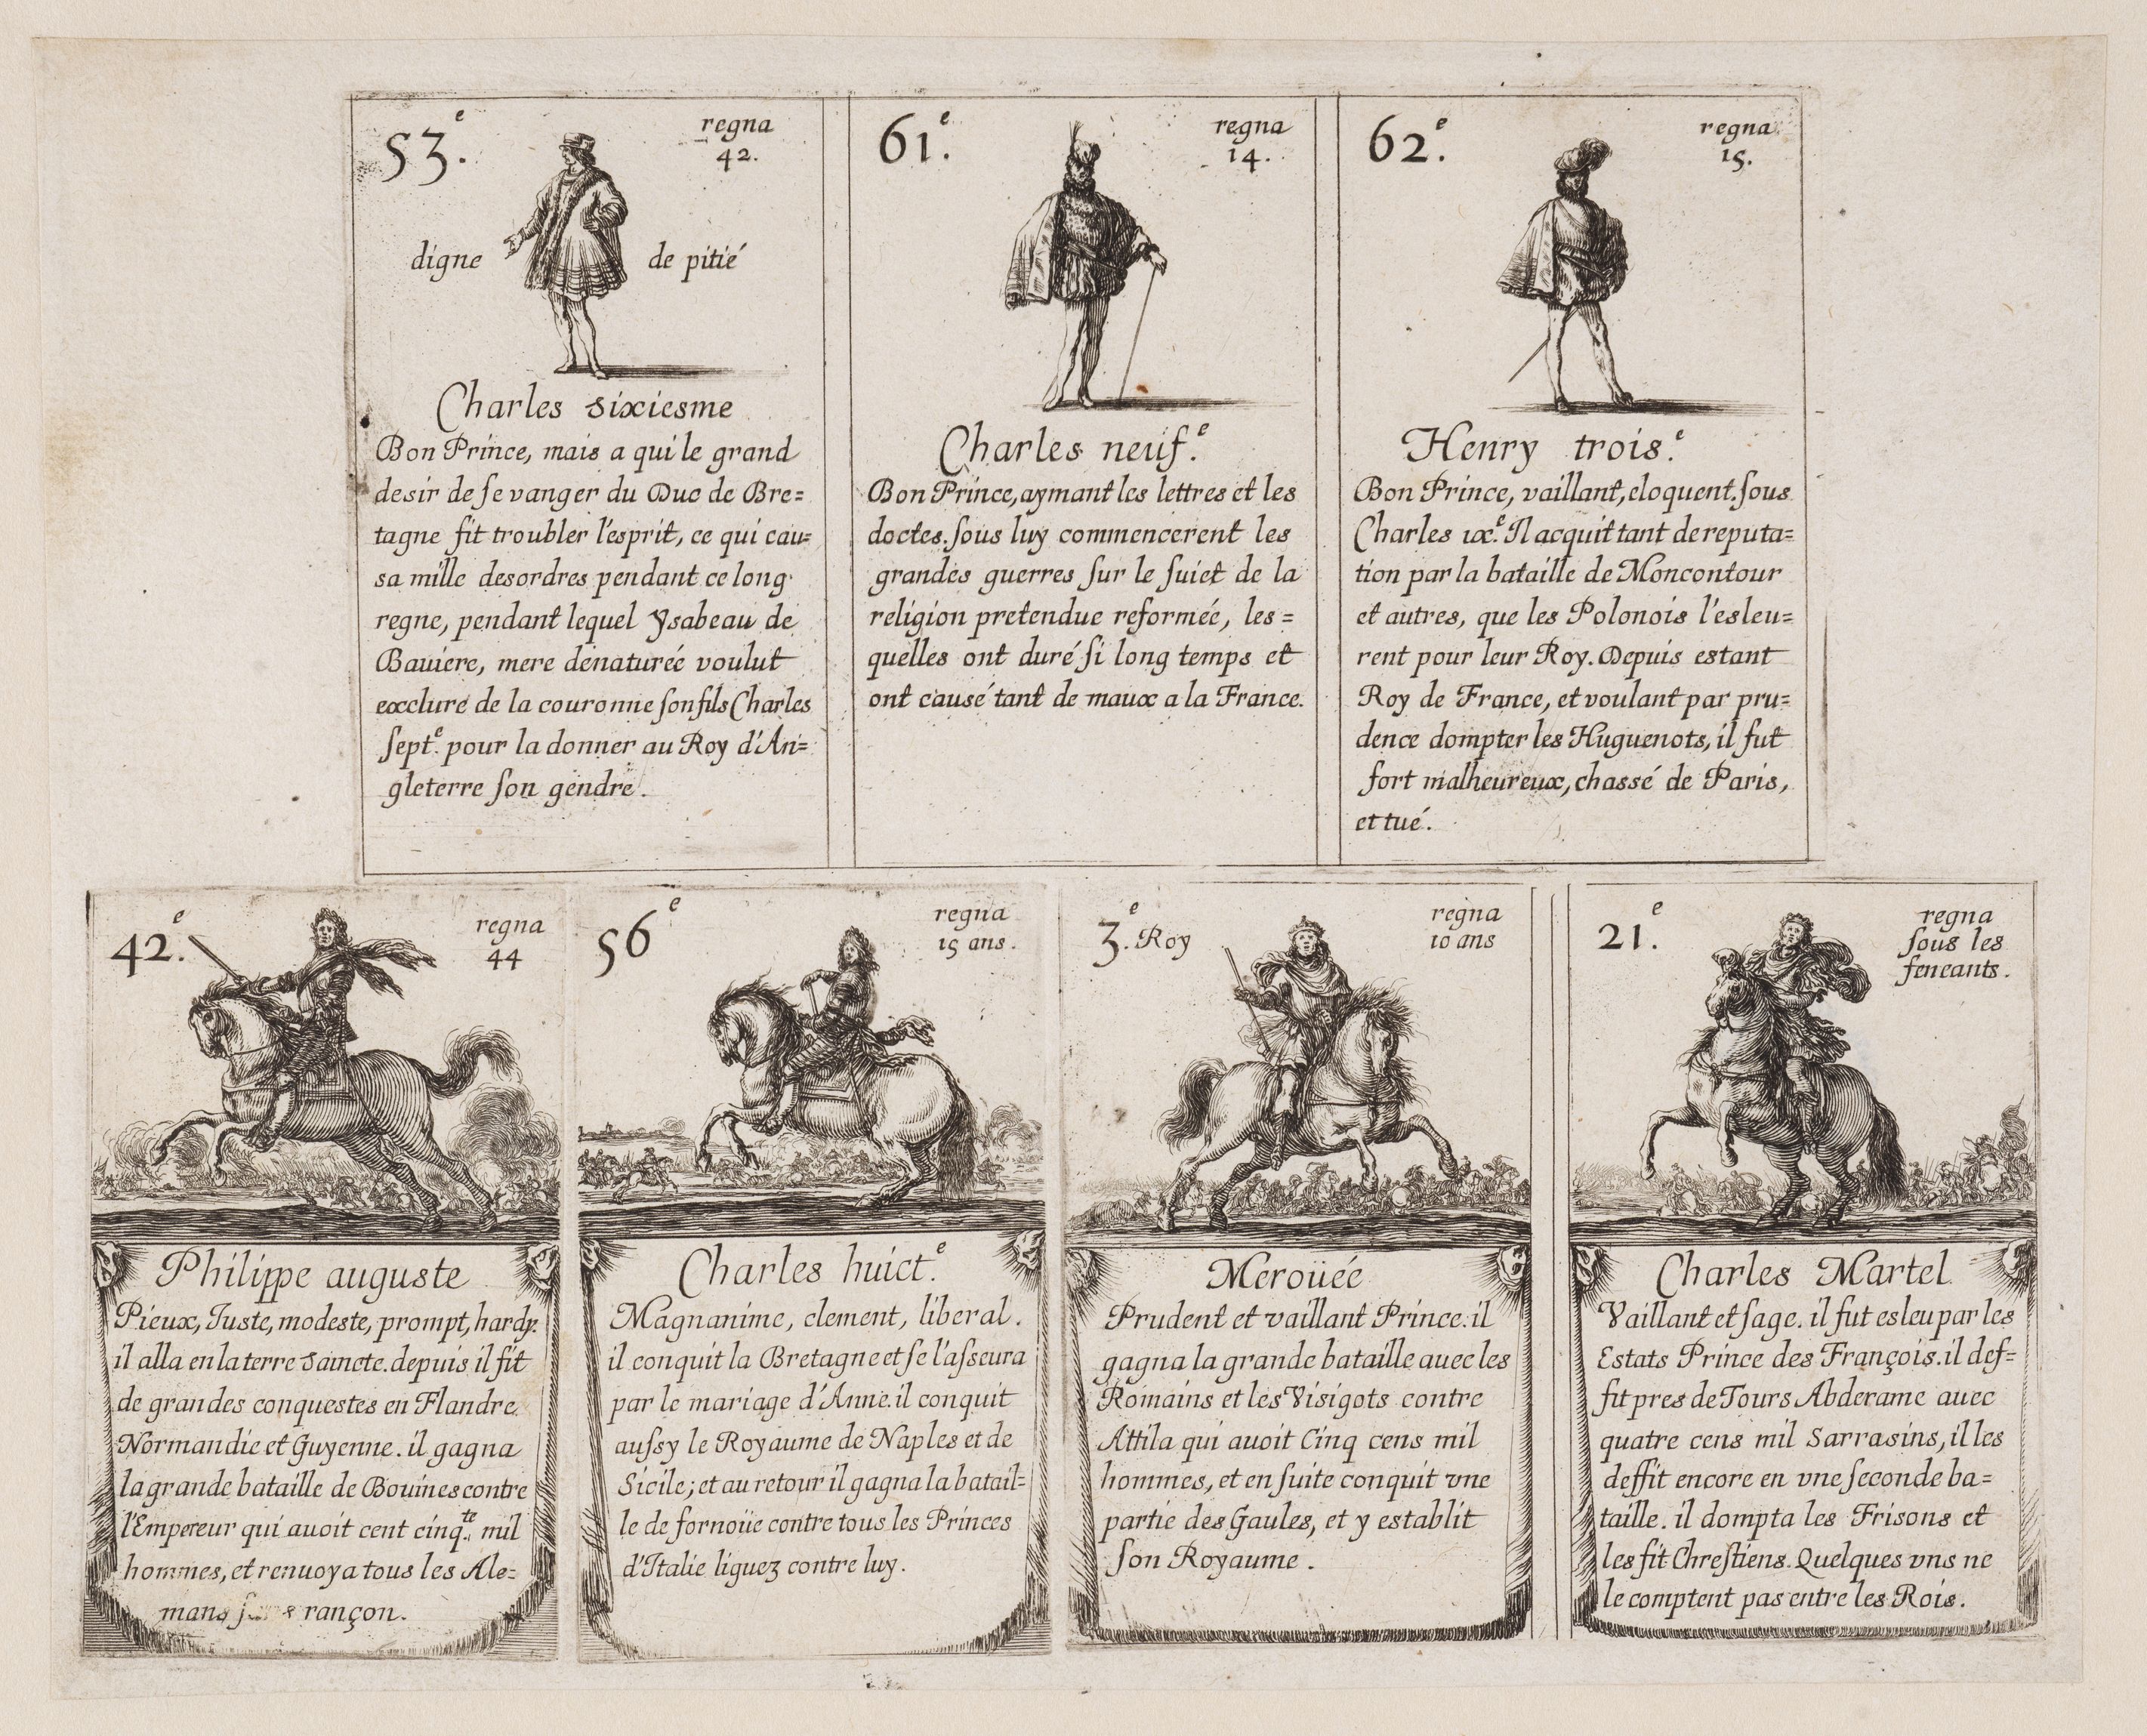 53.e
regna
42.
digne de pitié
Charles sixiesme
Bon Prince, mais a qui le grand
desir de se vanger du Duc de Bre=
tagne fit troubler l'esprit, ce qui cau=
sa mille desordres pendant ce long
regne, pendant lequel Ysabeau de
Bauiere, mere denatureé voulut
exclure de la couronne son fils Charles
sept.e pour la donner au Roy d'An=
gleterre son gendre.
61.e
regna
14.
Charles neuf.e
Bon Prince, aymant les lettres et les
doctes. sous luy commencerent les
grandes guerres sur le suiet de la
religion pretendue reformeé, les=
quelles ont duré si long temps et
ont causé tant de maux a la France.
62.e
regna
15.
Henry trois.e
Bon Prince, vaillant, eloquent. sous
Charles ix.e Il acquit tant de reputa=
tion par la bataille de Moncontour
et autres, que les Polonois l'esleu=
rent pour leur Roy. Depuis estant
Roy de France, et voulant par pru=
dence dompter les Huguenots, il fut
fort malheureux, chassé de Paris,
et tué.
42.e
regna
44
Philippe auguste
Pieux, Iuste, modeste, prompt, hardy.
il alla en la terre Saincte. depuis il fit
de grandes conquestes en Flandre
Normandie et Guyenne. il gagna
la grande bataille de Bouines contre
l'Empereur qui auoit cent cinq.te mil
hommes, et renuoya tous les Ale=
mans rançon.
56e
regna
15 ans.
Charles huict.e
Magnanime, clement, liberal.
il conquit la Bretagne et se l'asseura
par le mariage d'Anne. il conquit
aussy le Royaume de Naples et de
Sicile; et au retour il gagna la batail=
le de fornoüe contre tous les Princes
d'Italie liguez contre luy.
3.e Roy
regna
10 ans
Meroüeé
Prudent et vaillant Prince. il
gagna la grande bataille auec les
Romains et les Visigots contre
Attila qui auoit Cinq cens mil
hommes, et en suite conquit vne
partie des Gaules, et y establit
son Royaume.
21.e
regna
sous les
feneants.
Charles Martel
Vaillant et sage. il fut esleu par les
Estats Prince des François. il def=
fit pres de Tours Abderame auec
quatre cens mil Sarrasins, il les
deffit encore en vne seconde ba=
taille. il dompta les Frisons et
les fit Chrestiens. Quelques vns ne
le comptent pas entre les Rois.